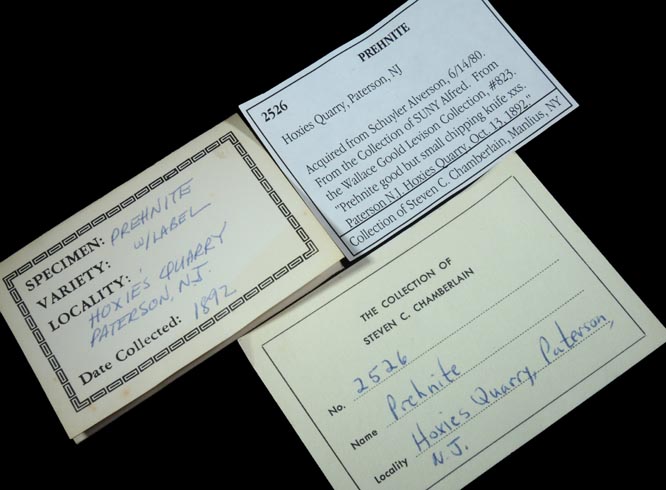 2526
PREHNITE
Hoxies Quarry, Paterson, NJ
Acquired from Schuyler Alverson, 6/14/80.
From the Collection of SUNY Alfred. From
the Wallace Goold Levison Collection, #823.
"Prehnite good but small chipping knife xxs.
Paterson N.J. Hoxies Quarry, Oct. 13, 1892."
Collection of Steven C. Chamberlain, Manlius, NY
SPECIMEN: PREHNITE
VARIETY: W/LABEL
LOCALITY:
HOXIE'S QUARRY
PATERSON, N.J.
Date Collected: 1892
THE COLLECTION OF
STEVEN C. CHAMBERLAIN
No. 2526
Name Prehnite
Locality Hoxies Quarry, Paterson,
N.J.